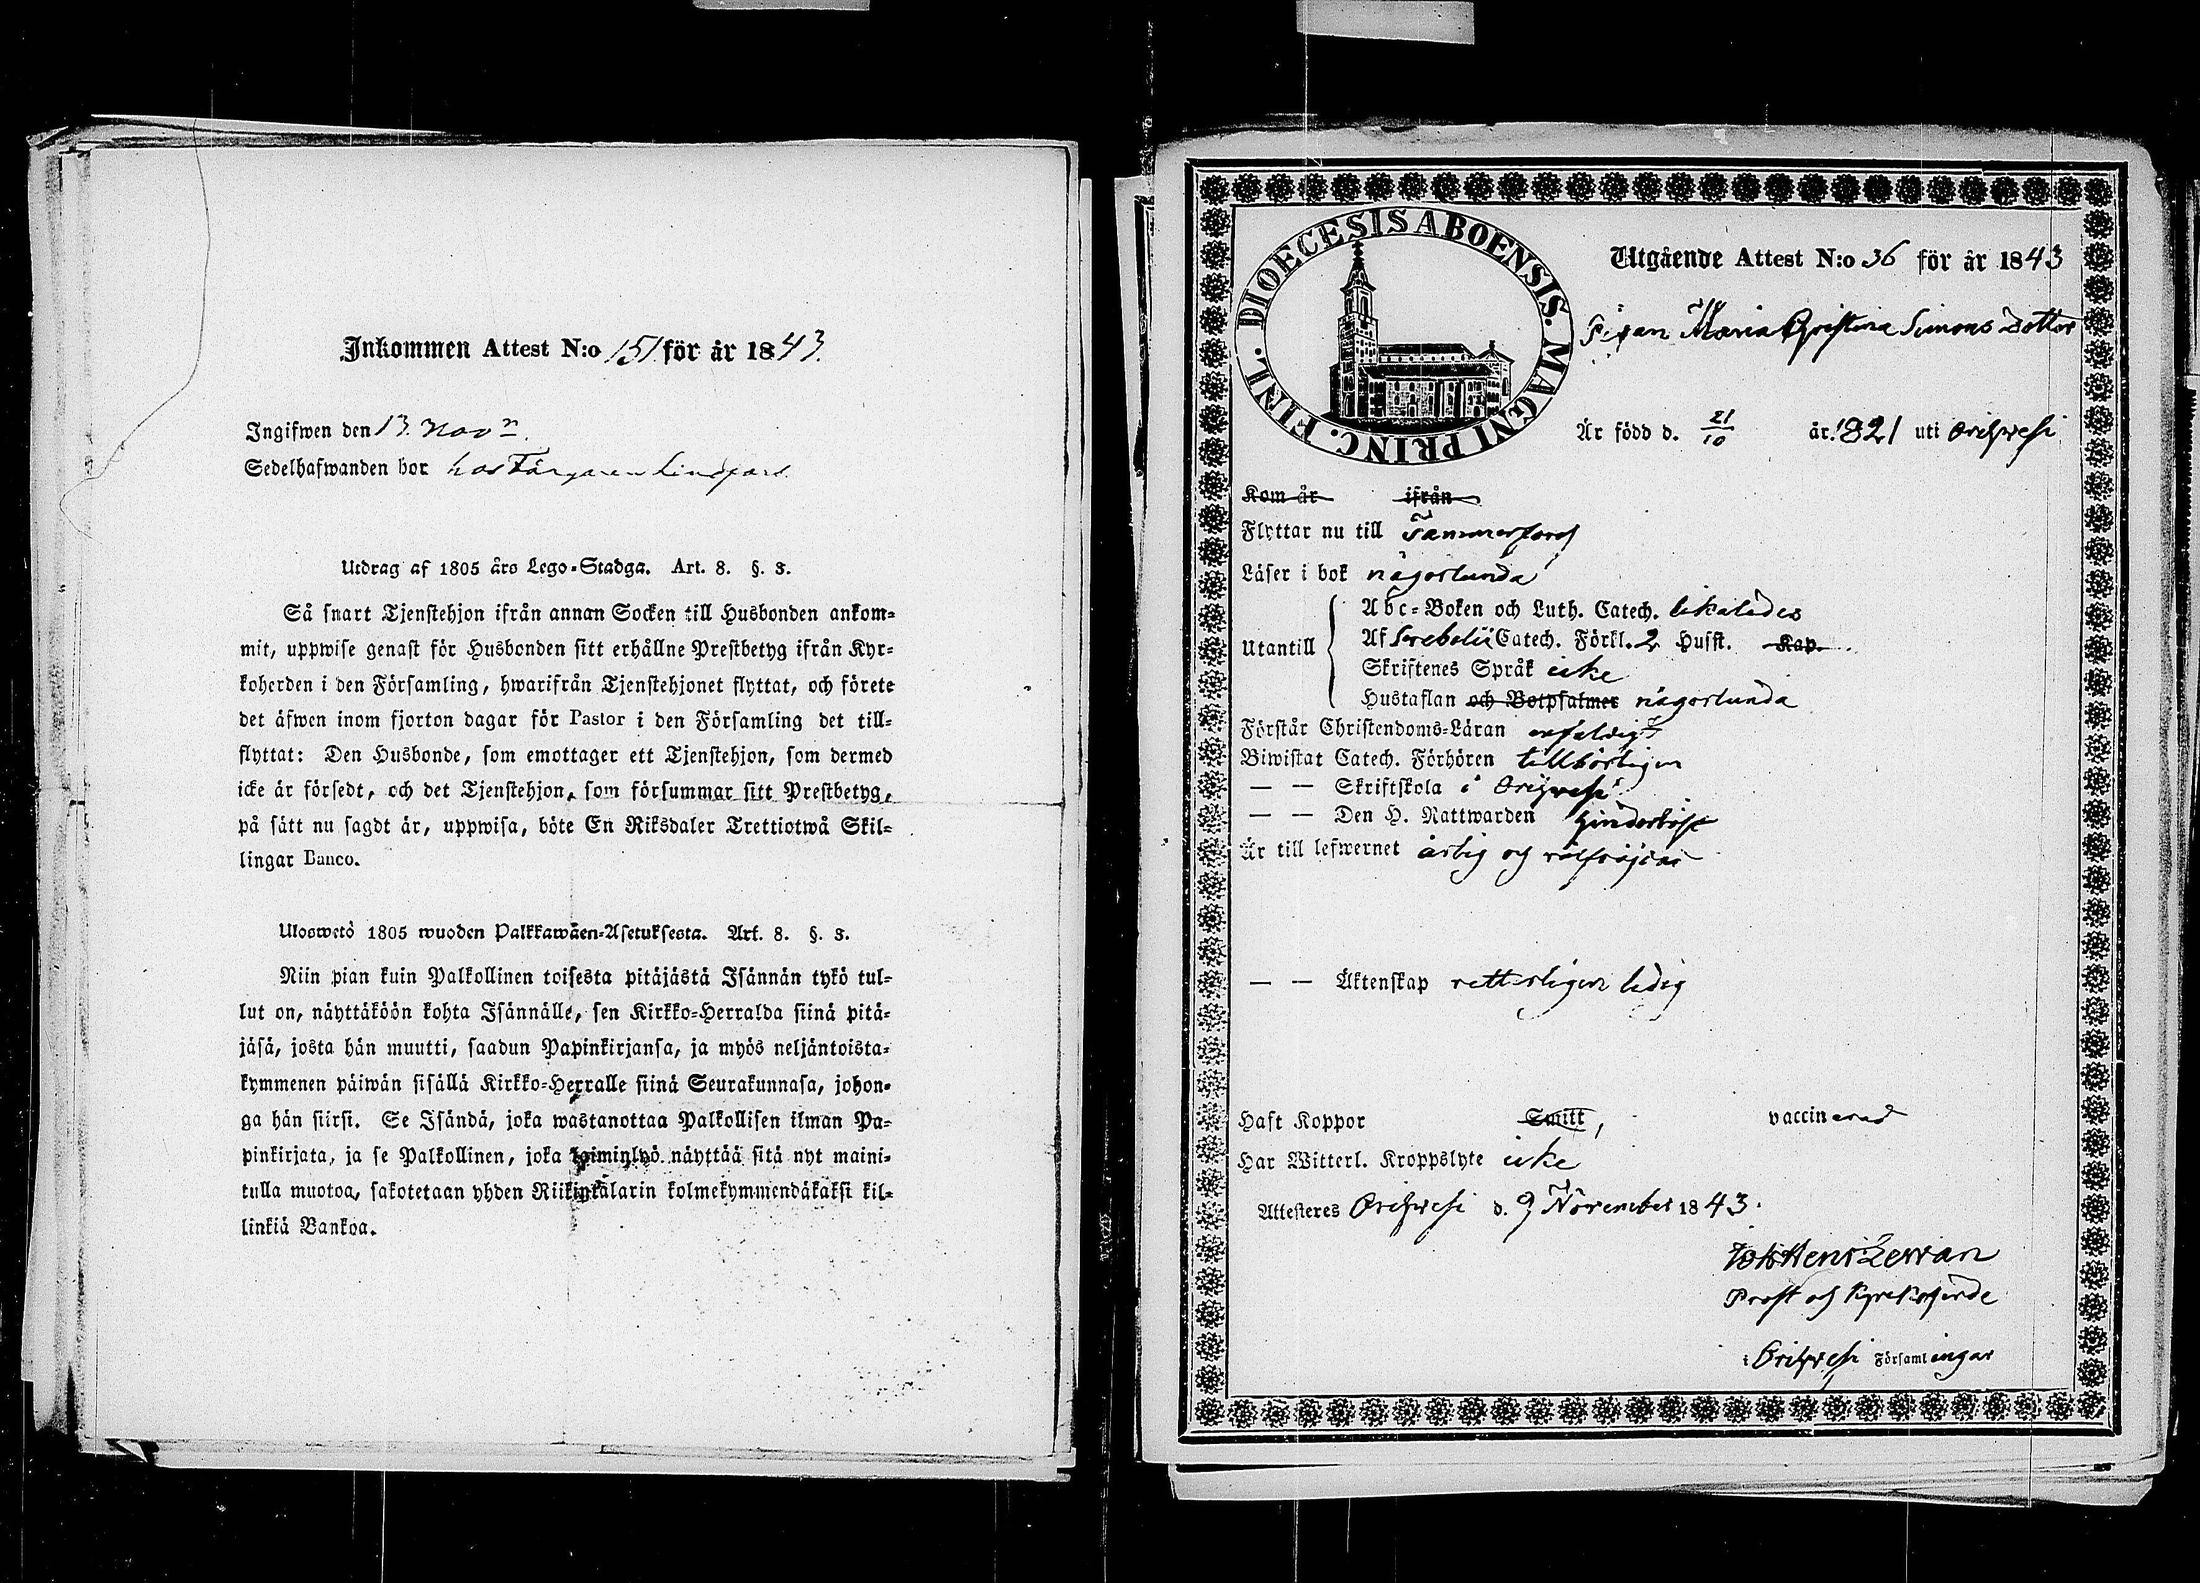 Inkommen Attest N:o 151 för år 1843.
Ingifwen den 13. Nov:r.
Sedelhafwanden bor hos Färgaren Lindfors.
Utdrag af 1805 års Lego-Stadga. Art. 8. §. 3.
Så snart Tjenstehjon ifrån annan Socken till Husbonden ankom-
mit, uppwise genast för Husbonden sitt erhållne Prestbetyg ifrån Kyr-
koherden i den Församling, hwarifrån Tjenstehjonet flyttat, och förete
det äfwen inom fjorton dagar för Pastor i den Församling det till-
flyttat: Den Husbonde, som emottager ett Tjenstehjon, som dermed
icke är försedt, och det Tjenstehjon, som försummar sitt Prestbetyg,
på sätt nu sagdt är, uppwisa, böte En Riksdaler Trettiotwå Skil-
lingar Banco.
Uloswetö 1805 wuoden Palkkawäen-Asetuksesta. Art. 8. §. 3.
Niin pian kuin Palkollinen toisesta pitäjästä Isännän tykö tul-
lut on, näyttäköön kohta Isännälle, sen Kirkko-Herralda siinä pitä-
jäsä, josta hän muutti, saadun Papinkirjansa, ja myös neljäntoista-
kymmenen päiwän sisällä Kirkko-Herralle siinä Seurakunnasa, johon-
ga hän siirsi. Se Isändä, joka wastanottaa Palkollisen ilman Pa-
pinkirjata, ja se Palkollinen, joka toiminlyö näyttää sitä nyt maini-
tulla muotoa, sakotetaan yhden Riikintalarin kolmekymmendäkaksi kil-
linkiä Bankoa.
DIOECESIS ABOENSIS. MAGNI PRINC. FINL.
Utgående Attest N:o 36 för år 1843
Pigan Maria Christina Simons Dotter
Är född d. 21/10 år 1821 uti Orihwesi
Kom år ifrån
Flyttar nu till Tammerfors
Läser i bok någorlunda
Utantill
Abc-Boken och Luth. Catech. likaledes
Af Svebelii Catech. Förkl. 2 Husst. Kap.
Skriftenes Språk icke
Hustaflan och Botpsalmer någorlunda
Förstår Christendoms-Läran enfaldigt
Biwistat Catech. Förhören tillbörligen
— — Skriftskola i Orihwesi
— — Den H. Nattwarden
Är till lefwernet ärlig och
— — Äktenskap ledig
Haft Koppor Smitt, vaccinerad
Har Witterl. Kroppslyte icke
Attesteres Orihwesi d. 9 November 1843.
Prost och Kyrkoherde
i Orihwesi Församlingar